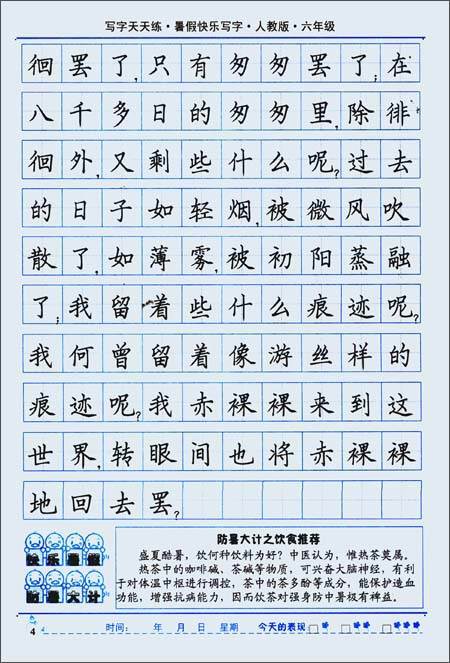 写字天天练·暑假快乐写字·人教版·六年级
徊罢了,只有匆匆罢了;在
八千多日的匆匆里,除徘
徊外,又剩些什么呢?过去
的日子如轻烟,被微风吹
散了,如薄雾,被初阳蒸融
了;我留着些什么痕迹呢?
我何曾留着像游丝样的
痕迹呢?我赤裸裸来到这
世界,转眼间也将赤裸裸
地回去罢?
快乐暑假
防暑大计
防暑大计之饮食推荐
盛夏酷暑，饮何种饮料为好？中医认为，惟热茶莫属。
热茶中的咖啡碱、茶碱等物质，可兴奋大脑神经，有利
于对体温中枢进行调控，茶中的茶多酚等成分，能保护造血
功能，增强抗病能力，因而饮茶对强身防中暑极有裨益。
4 时间： 年 月 日 星期 今天的表现